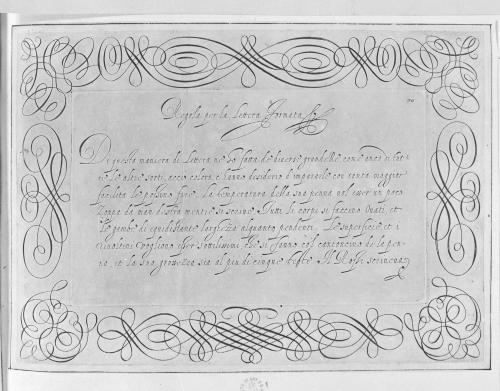 Regola per la Lettera Formata
Di questa maniera di Lettera ne ho fatta de diverse grandezze come anco di tut=
te le altre sorti, acciò coloro, c'hanno desiderio d'impararle con tanta maggior
facilità le possino fare. La temperatura della sua penna vol esser un poco
Zoppa da man destra mentre si scrive. Tutti li corpi si faccino Ovati, et
le gambe di equidistante larghezza alquanto pendenti. Le superficie et i
vogliono esser sottilissimi, che si fanno col cantoncino de la pen=
na, et la sua grossezza sia al piu di cinque teste. Il Rossi scriveva